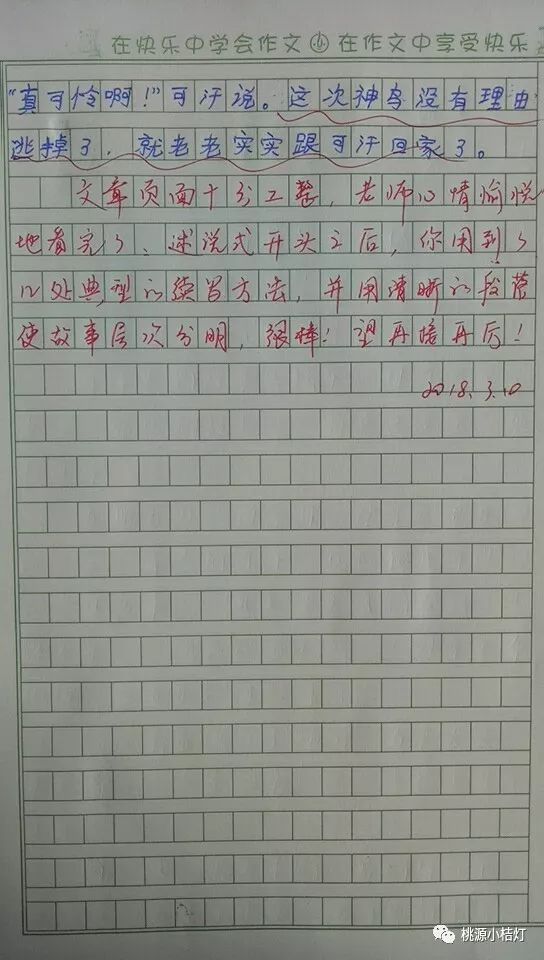 在快乐中学会作文 在作文中享受快乐
“真可怜啊！”可汗说。这次神鸟没有理由
逃掉了，就老老实实跟可汗回家了。
文章页面十分工整，老师心情愉悦
地看完了、述说式开头之后，你用到了
几处典型的续写方法，并用清晰的段落
使故事层次分明，很棒！望再接再厉！
2018.3.10
桃源小桔灯